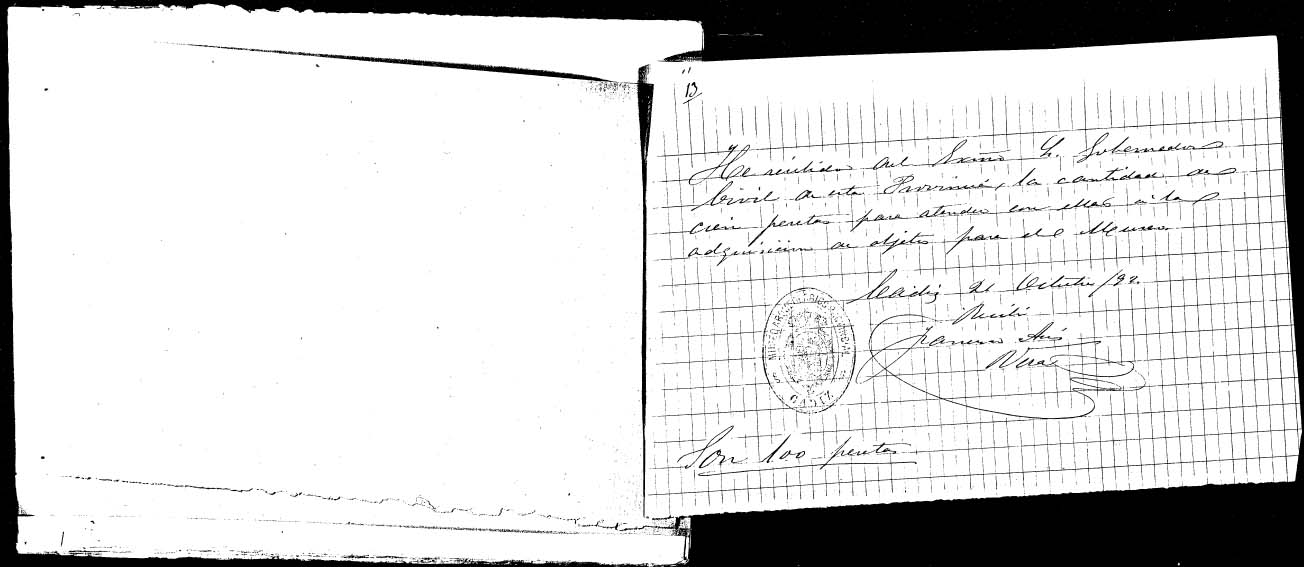 " 13
He recibido del Exmo Sr. Gobernador
Civil de esta Provincia, la cantidad de
cien pesetas para atender con ellas á la
adquisicion de objetos para el Museo.
Cádiz 21 Octubre/92.
Recibí
Francisco Asís
Vera
MUSEO ARQUEOLÓGICO PROVINCIAL
CÁDIZ
Son 100 pesetas